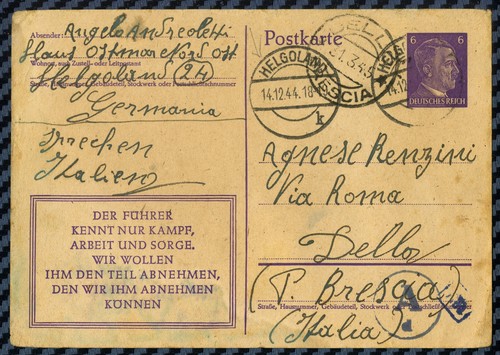 Absender: Angelo Andreoletti
Haus Ottmar Nord Ost
Wohnort, auch Zustell- oder Leitpostamt
Helgoland (24)
Straße, Hausnummer, Gebäudeteil, Stockwerk oder Postschließfachnummer
Germania
Sprechen
Italien
DER FÜHRER
KENNT NUR KAMPF,
ARBEIT UND SORGE.
WIR WOLLEN
IHM DEN TEIL ABNEHMEN,
DEN WIR IHM ABNEHMEN
KÖNNEN
Postkarte
HELGOLAND
14.12.44.18
k
DELLO
BRESCIA
6 6
DEUTSCHES REICH
Agnese Renzini
Via Roma
Dello
(P. Brescia)
Straße, Hausnummer, Gebäudeteil, Stockwerk oder Postschließfachnummer
(Italia)
A